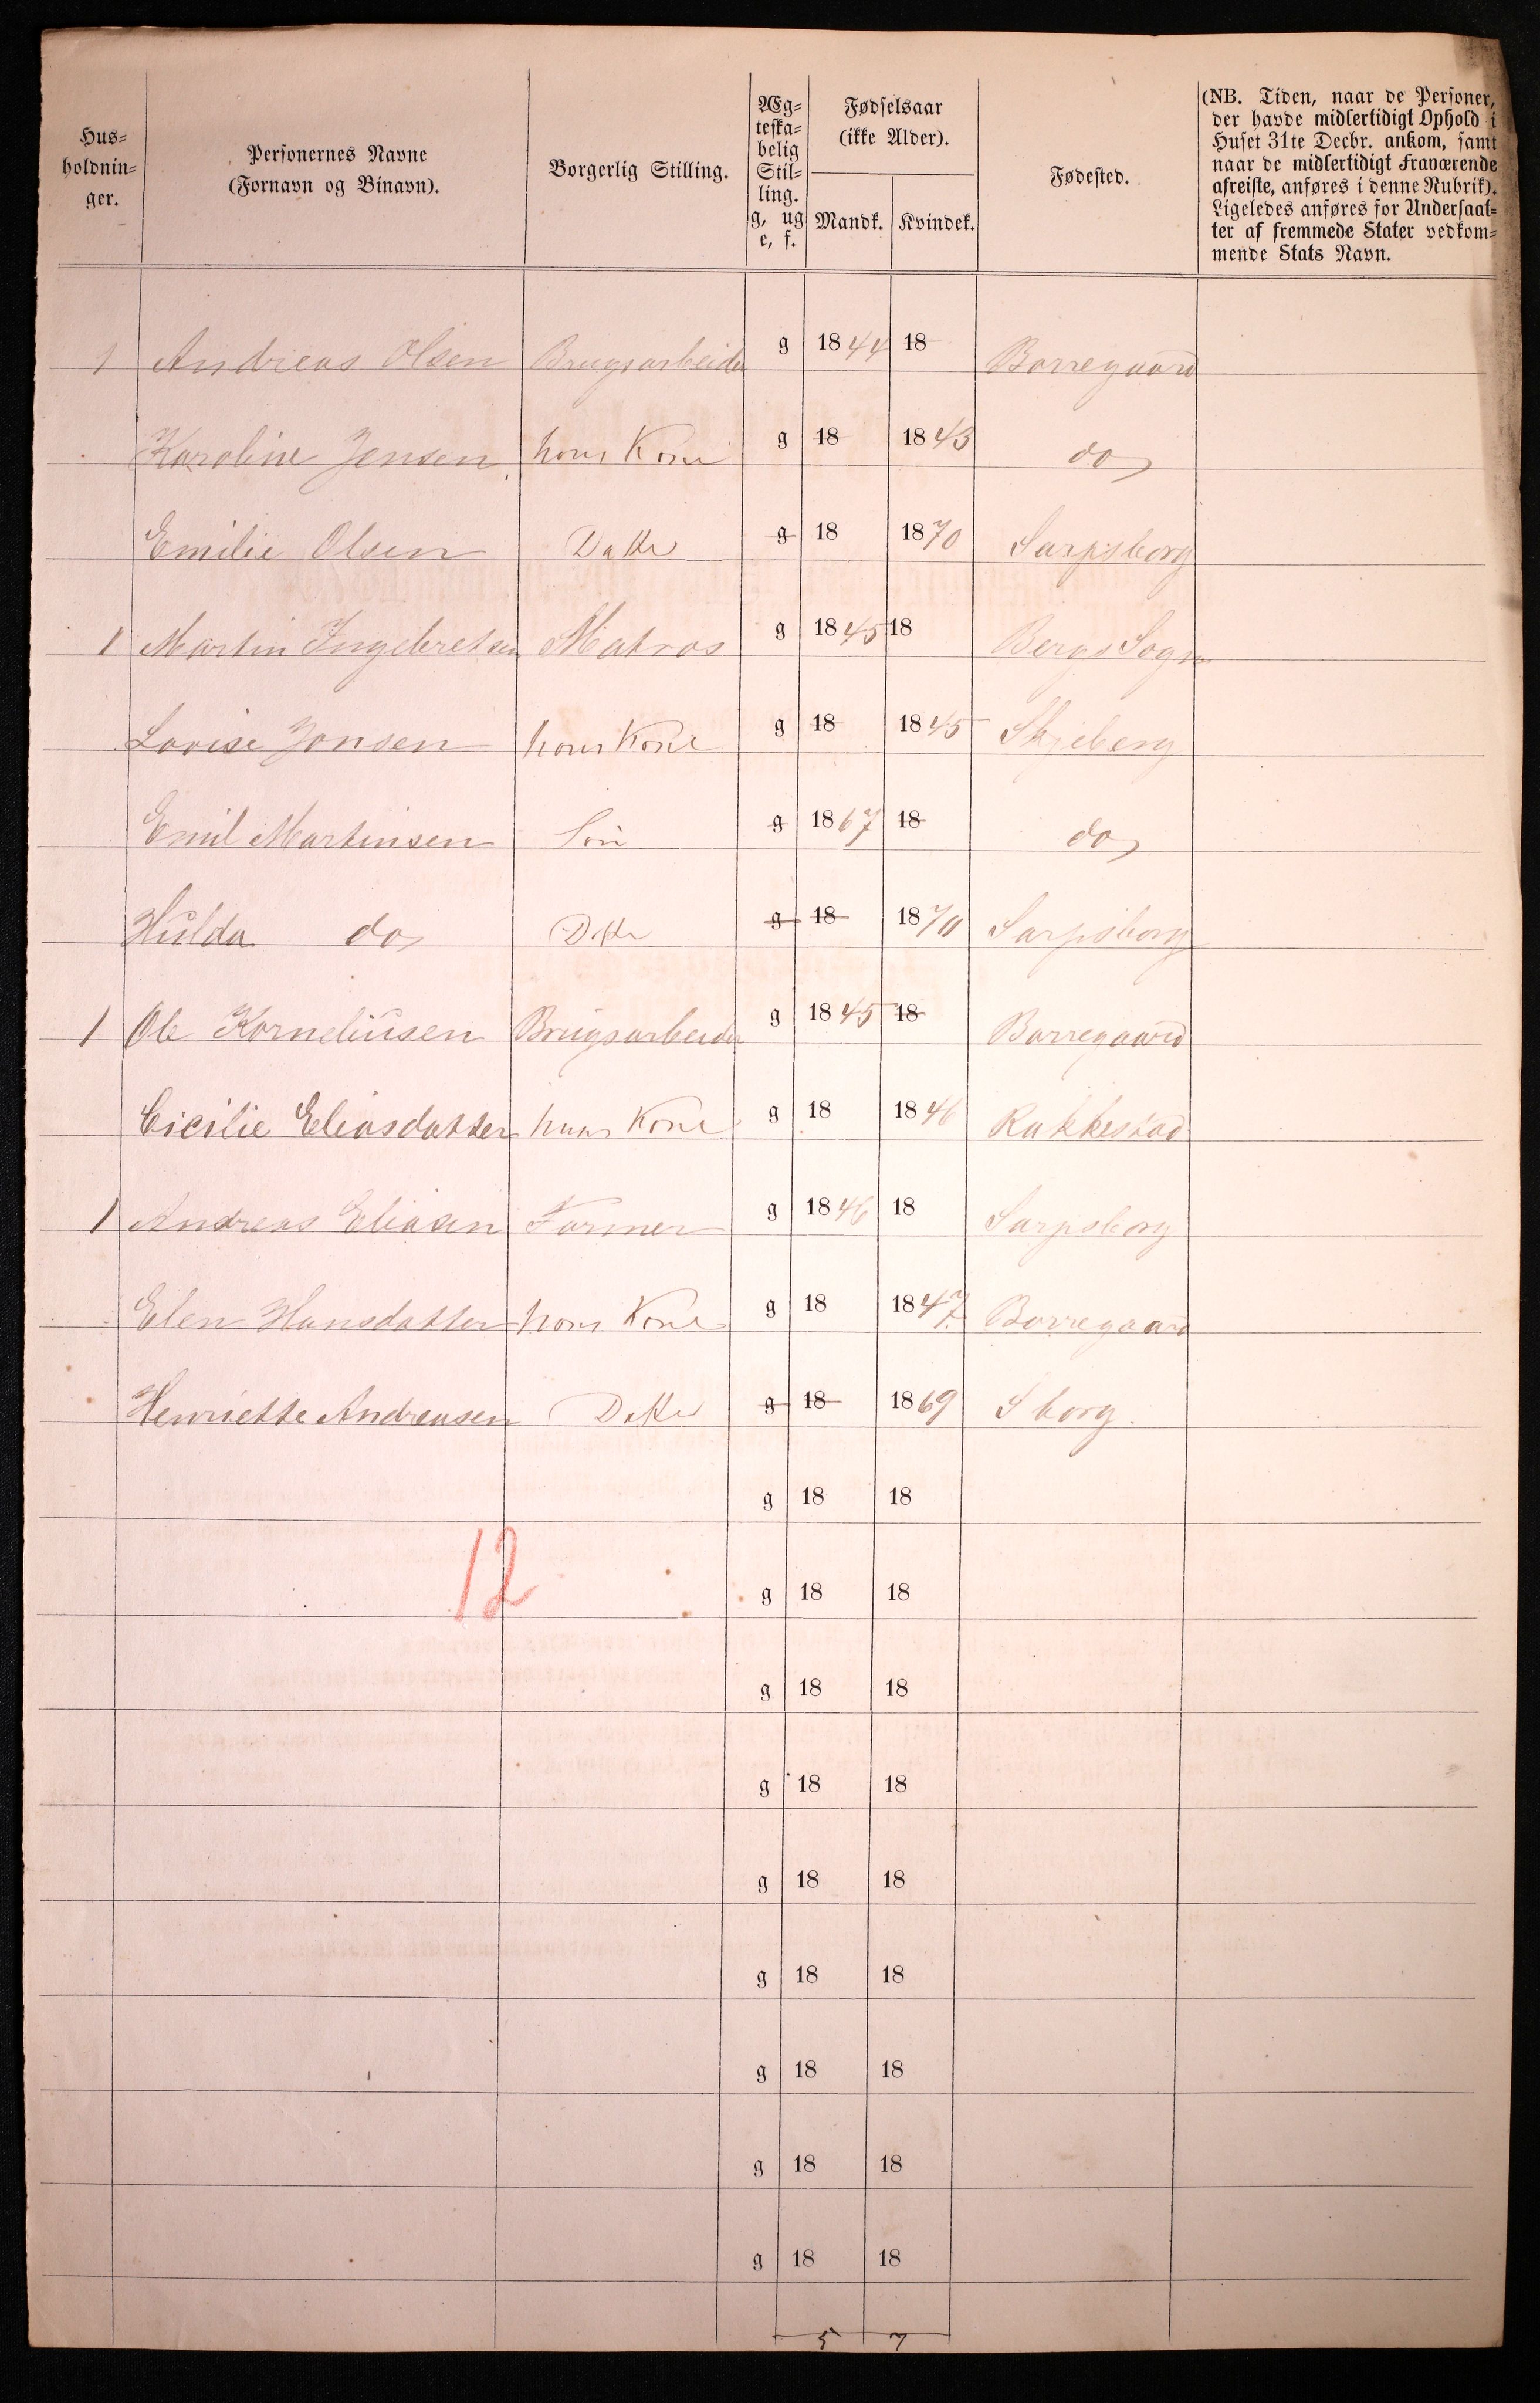 Hus-
holdnin-
ger.
Personernes Navne
(Fornavn og Binavn).
Borgerlig Stilling.
Æg-
teska-
belig
Stil-
ling.
g, ug
e, f.
Fødselsaar
(ikke Alder).
Mandk. Kvindek.
Fødested.
(NB. Tiden, naar de Personer,
der havde midlertidigt Ophold i
Huset 31te Decbr. ankom, samt
naar de midlertidigt Fraværende
afreiste, anføres i denne Rubrik).
Ligeledes anføres for Undersaat-
ter af fremmede Stater vedkom-
mende Stats Navn.
1 Andreas Olsen Brugsarbeider g 1844 18 Borregaard
Karoline Jensen hans Kone g 18 1843 do,
Emilie Olsen Datter g 18 1870 Sarpsborg
1 Martin Ingebretsen Matros g 1845 18 Bergs Sogn
Lovise Jonsen hans Kone g 18 1845 Skjeberg
Emil Martinsen Søn g 1867 18 do,
Hulda do, Datter g 18 1870 Sarpsborg
1 Ole Korneliusen Brugsarbeider g 1845 18 Borregaard
Cicilie Eliasdatter hans Kone g 18 1846 Rakkestad
1 Andreas Eliasen Former g 1846 18 Sarpsborg
Elen Hansdatter hans Kone g 18 1847. Borregaard
Henriette Andreasen Datter g 18 1869 Sborg.
g 18 18
12
g 18 18
g 18 18
g 18 18
g 18 18
g 18 18
g 18 18
g 18 18
g 18 18
5 7